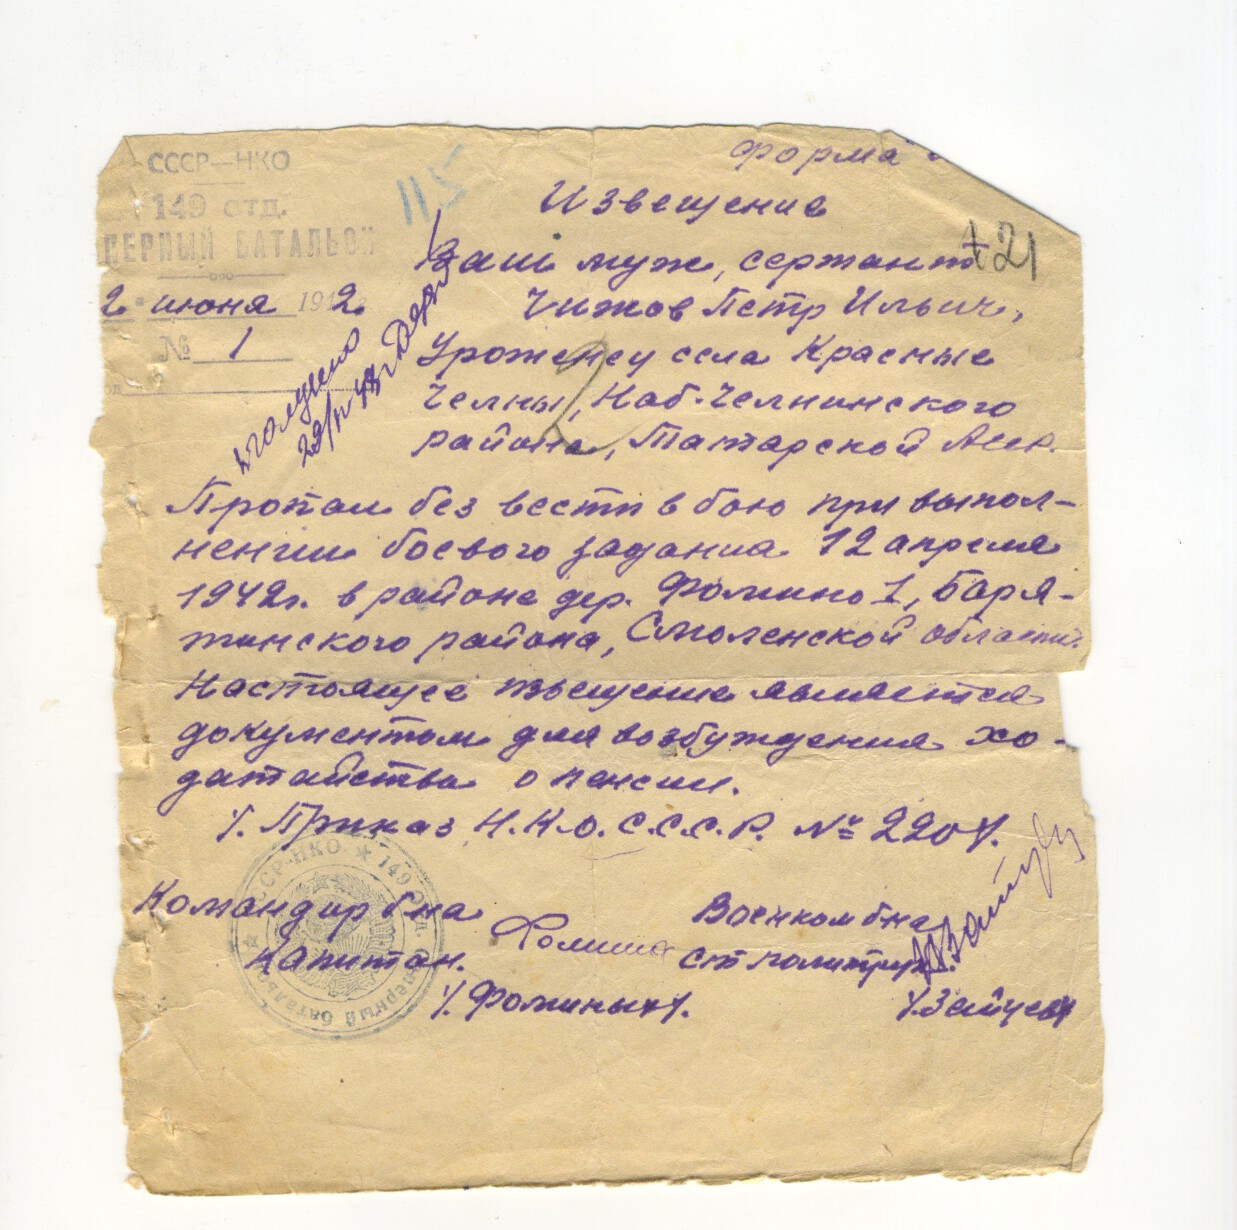 СССР—НКО
149 отд.
ПЕРНЫЙ БАТАЛЬОН
2 " июня 1942
№ 1
115
Форма
Извещение
+21
Ваш муж, сержант
Чижов Петр Ильич,
Уроженец села Красные
Челны, Наб-Челнинского
района, Татарской
2
Пропал без вести в бою при выпол-
нении боевого задания 12 апреля
1942г. в районе дер. Фомино I, Баря-
тинского района, Смоленской области.
Настоящее извещение является
документом для возбуждения хо-
датайства о пенсии.
/. Приказ Н.К.О. С.С.С.Р. № 220/.
Командир б-на
Капитан.
/. Фоминых/.
Военком б-на
ст политрук.
/. Зайцев/
СР-НКО ★ 149 отд. саперный батальон ★